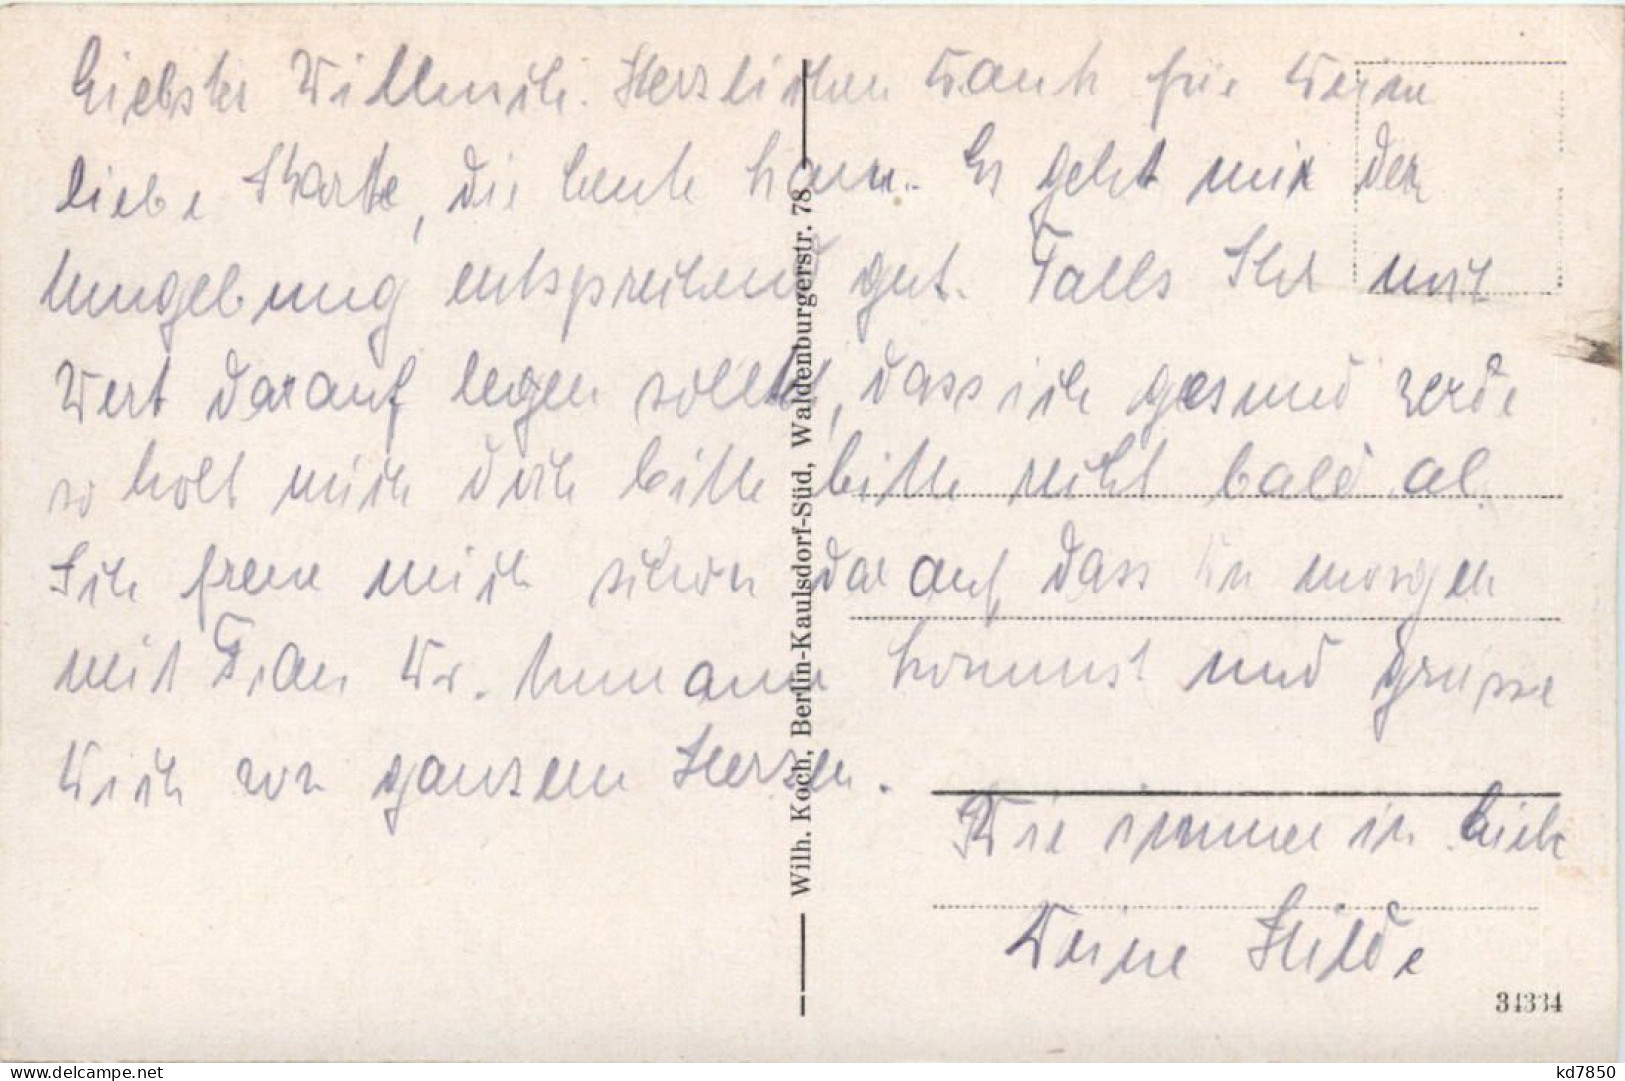 Liebster Willmich. Herzlichen Dank für Deine
liebe Karte, die heute kam. Es geht mir der
Umgebung entsprechend gut. Falls Ihr noch
Wert darauf legen solltet, dass ich gesund werde
so holt mich doch bitte bitte recht bald ab.
Ich freue mich schon darauf, dass Du morgen
mit Frau Dr. kommst und Grüsse
Dich von ganzem Herzen.
Wie immer in Liebe
Deine Hilde
Wilh. Koch, Berlin-Kaulsdorf-Süd, Waldenburgerstr. 78
34334
delcampe.net
kd7850